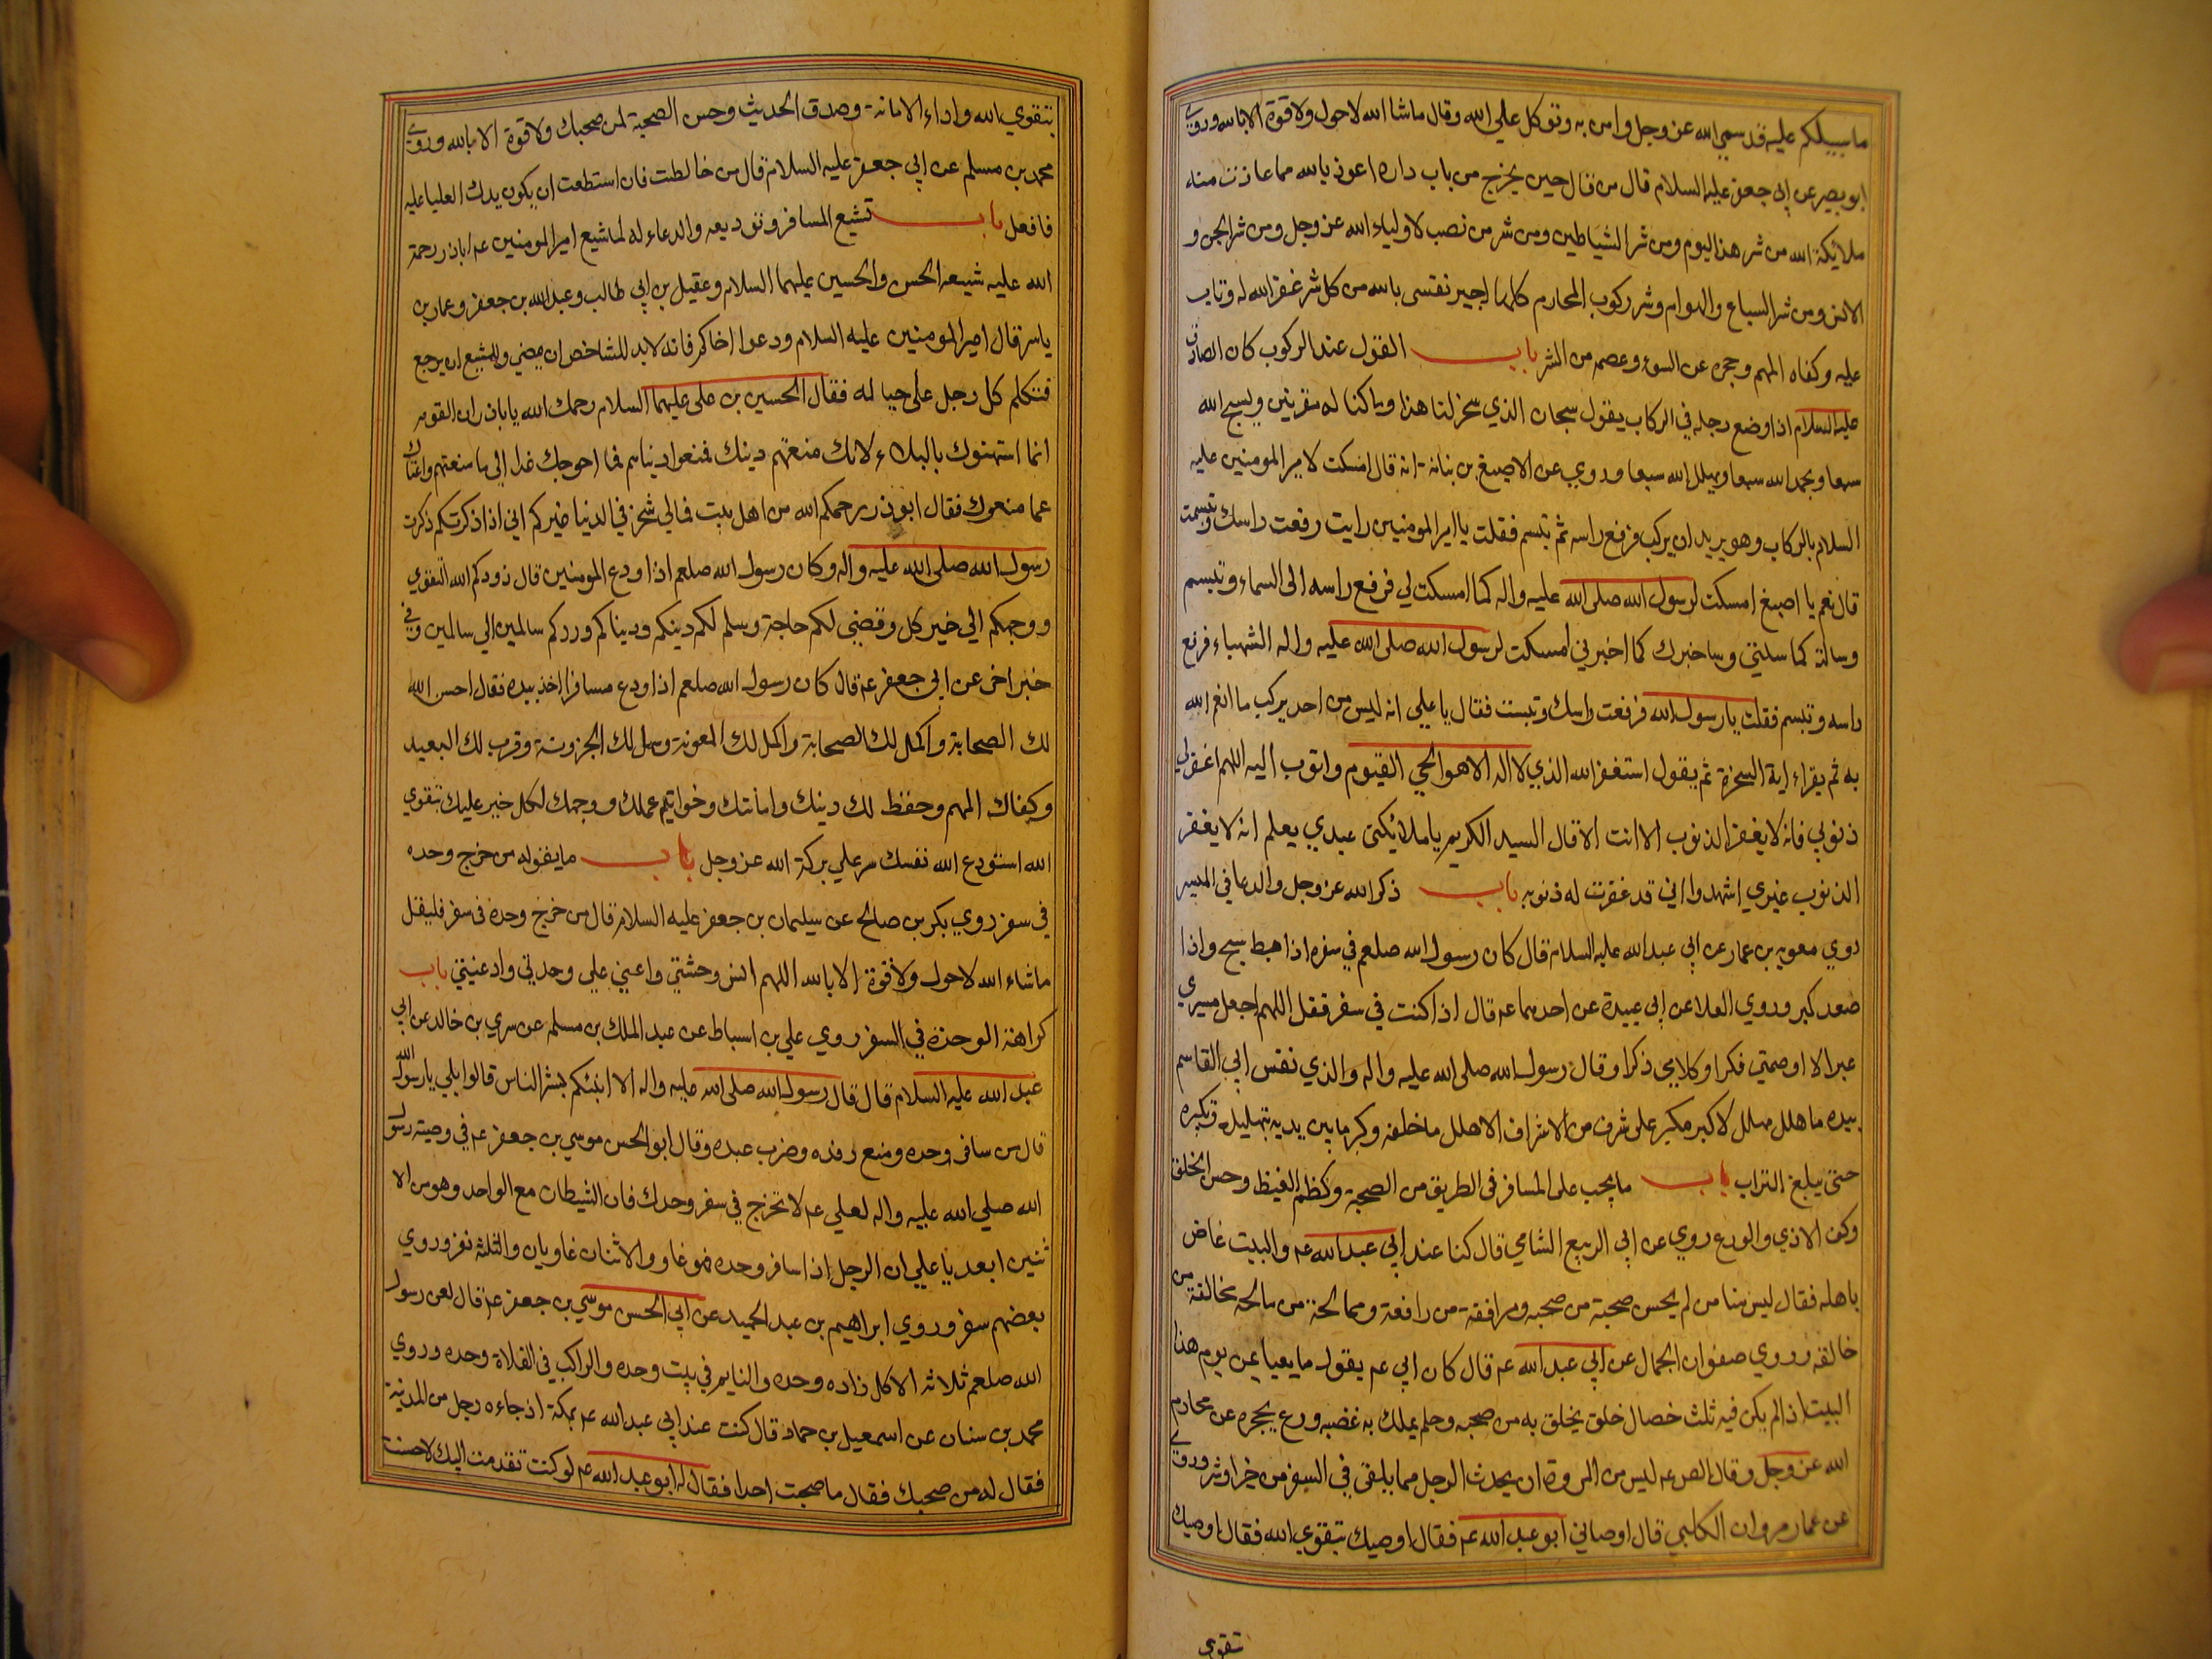 ما سبيلكم عليه قد سمي الله عز وجل وامن به وتوكل علي الله وقال ماشا الله لا حول ولا قوة الا بالله وروي
ابو بصير عن ابي جعفر عليه السلام قال من قال حين يخرج من باب داره اعوذ بالله مما عاذت منه
ملائكة الله من شر هذا اليوم ومن شر الشياطين ومن شر من نصب لاولياء الله عز وجل ومن شر الجن و
الانس ومن شر السباع والهوام وشر ركوب المحارم كلها اجير نفسى بالله من كل شر غفر الله له وتاب
عليه وكفاه المهم وحجزه عن السوء وعصمه من الشر باب القول عند الركوب كان الصادق
عليه السلام اذا وضع رجله في الركاب يقول سبحان الذي سخر لنا هذا وما كنا له مقرنين ويسبح الله
سبعا ويحمد الله سبعا ويهلل الله سبعا وروي عن الاصبغ بن بناتة انه قال امسكت لامير المومنين عليه
السلام بالركاب وهو يريد ان يركب فرفع راسه ثم تبسم فقلت يا امير المومنين رايت رفعت راسك وتبسمت
قال نعم يا اصبغ امسكت لرسول الله صلى الله عليه واله كما امسكت لي فرفع راسه الى السماء وتبسم
وسالته كما سلتني وساخبرك كما اخبرني امسكت لرسول الله صلى الله عليه واله الشهباء فرفع
راسه وتبسم فقلت يا رسول الله فرفعت راسك وتبسمت فقال يا علي انه ليس من احد يركب ما انعم الله
به ثم يقراء اية السخرة ثم يقول استغفر الله الذي لا اله الا هو الحي القيوم واتوب اليه اللهم اغفر لي
ذنوبي فانه لا يغفر الذنوب الا انت الا قال السيد الكريم يا ملائكتى عبدي يعلم انه لا يغفر
الذنوب غيري اشهدوا اني قد غفرت له ذنوبه باب ذكر الله عز وجل والدعا في المسير
روي معويه بن عمار عن ابي عبد الله عليه السلام قال كان رسول الله صلعم في سفره اذا هبط سبح واذا
صعد كبر وروي العلا عن ابي عبيدة عن احدهما عم قال اذا كنت في سفر فقل اللهم اجعل مسيري
عبرا وصمتي فكرا وكلامي ذكرا وقال رسول الله صلى الله عليه واله والذي نفس ابي القاسم
بيده ما هلل مهلل لا كبر مكبر على شرف من الاشراف الا هلل ما خلفه وكبر ما بين يديه بتهليله وتكبيره
حتى يبلغ التراب باب ما يجب على المسافر فى الطريق من الصحبة وكظم الغيظ وحسن الخلق
وكف الاذي والورع روي عن ابي الربيع الشامي قال كنا عند ابي عبد الله عم والبيت غاص
باهله فقال ليس منا من لم يحسن صحبة من صحبه ومرافقة من رافقه وممالحة من مالحه مخالقة من
خالقه وروي صفوان الجمال عن ابي عبد الله عم قال كان ابي عم يقول ما يعبا عن يوم هذا
البيت اذا لم يكن فيه ثلث خصال خلق يخلق به من صحبه وحلم يملك به غضبه وورع يحجزه عن محارم
الله عز وجل وقال الص عم ليس من المروة ان يحدث الرجل مما يلقى في السفر من خير او شر وروي
عن عمار مروان الكلبي قال اوصاني ابو عبد الله عم فقال اوصيك بتقوي الله فقال اوصيك
تقوى
بتقوي الله واداء الامانة وصدق الحديث وحسن الصحبة لمن صحبك ولا قوة الا بالله وروي
محمد بن مسلم عن ابي جعفر عليه السلام قال من خالطت فان استطعت ان يكون يدك العليا عليه
فافعل باب تشيع المسافر وتوديعه والدعاء له لما شيع امير المومنين عم اباذر رحمة
الله عليه شيعه الحسن والحسين عليهما السلام وعقيل بن ابي طالب وعبد الله بن جعفر وعمار بن
ياسر قال امير المومنين عليه السلام ودعوا اخاكم فانه لابد للشاخص ان يمضي وللمشيع ان يرجع
فتكلم كل رجل على حياله فقال الحسين بن على عليهما السلام رحمك الله يا باذر ان القوم
انما استهنوك بالبلاء لانك منعتهم دينك فمنعوا دنياهم فما احوجك غدا الى ما منعتهم واغناك
عما منعوك فقال ابوذر رحمكم الله من اهل بيت فمالي شجن في الدنيا غيركم اني اذا ذكرتكم ذكرت
رسول الله صلى الله عليه واله وكان رسول الله صلعم اذا ودع المومنين قال زودكم الله التقوي
ووجهكم الي خير كل وقضى لكم حاجة وسلم لكم دينكم ودنياكم وردكم سالمين الي سالمين وفي
خبر اخر عن ابي جعفر عم قال كان رسول الله صلعم اذا ودع مسافرا اخذ بيده فقال احسن الله
لك الصحابة واكمل لك الصحابة واكمل لك المعونة وسهل لك الحزونة وقرب لك البعيد
وكفاك المهم وحفظ لك دينك وامانتك وخواتيم عملك ووجهك لكل خير عليك بتقوي
الله استودع الله نفسك سر علي بركة الله عز وجل باب ما يقوله من خرج وحده
في سفر روي بكر بن صالح عن سليمان بن جعفر عليه السلام قال من خرج وحده فى سفر فليقل
ماشاء الله لا حول ولا قوة الا بالله اللهم انس وحشتي واعني علي وحدتي واد غيبتي باب
كراهة الوحدة في السفر روي علي بن اسباط عن عبد الملك بن مسلم عن سري بن خالد عن ابي
عبد الله عليه السلام قال قال رسول الله صلى الله عليه واله الا انبئكم بشر الناس قالوا بلي يا رسول الله
قال من سافر وحده ومنع رفده وضرب عبده وقال ابو الحسن موسي بن جعفر عم في وصية رسول
الله صلي الله عليه واله لعلي عم لا تخرج في سفر وحدك فان الشيطان مع الواحد وهو من الا
ثنين ابعد يا علي ان الرجل اذا سافر وحده فهو غاو والاثنان غاويان والثلثة نفر وروي
بعضهم سفر وروي ابراهيم بن عبد الحميد عن ابي الحسن موسي بن جعفر عم قال لعن رسول
الله صلعم ثلاثة الاكل زاده وحده والنايم في بيت وحده والراكب في الفلاة وحده وروي
محمد بن سنان عن اسمعيل بن حماد قال كنت عند ابي عبد الله عم بمكة اذ جاءه رجل من المدينة
فقال له من صحبك فقال ما صحبت احدا فقال له ابو عبد الله عم لو كنت تقدمت اليك لاحسنت